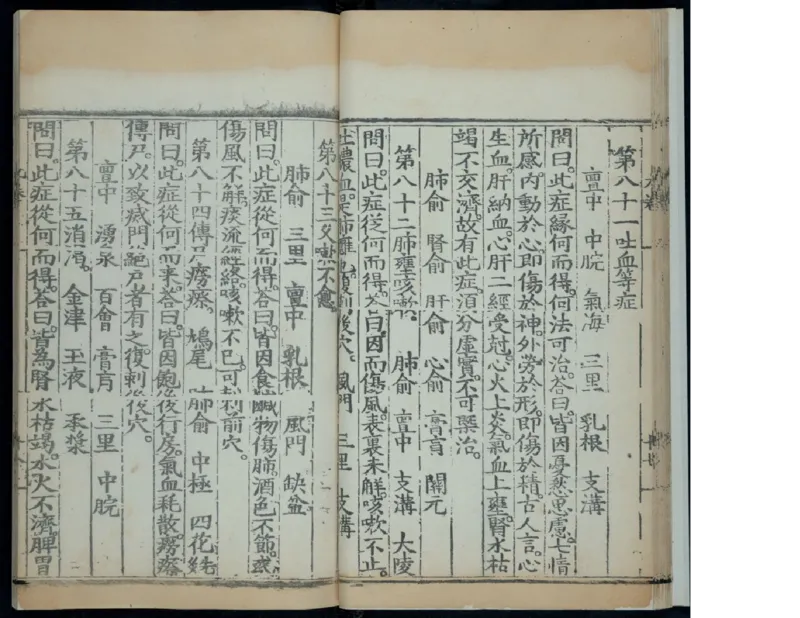 第八十一吐血等症
亶中 中脘 氣海 三里 乳根 支溝
問曰。此症緣何而得。何法可治。荅曰。皆因憂愁思慮。七情
所感。内動於心。即傷於神。外勞於形。即傷於精。古人言。心
生血。肝納血。心肝二經受尅。心火上炎。氣血上壅。腎水枯
竭不交濟。故有此症。須分虛實。不可槩治。
肺俞 腎俞 肝俞 心俞 膏肓 關元
第八十二肺壅咳嗽。 肺俞 亶中 支溝 大陵
問曰。此症從何而得。荅曰。因而傷風。表裏未解。咳嗽不止。
吐膿血。是肺癰也。復刺後穴。風門 三里 支溝
第八十三久嗽不愈
肺俞 三里 亶中 乳根 風門 缺盆
問曰。此症從何而得。荅曰。皆因食鹹物傷肺。酒色不節。或
傷風不解。痰流經絡。咳嗽不已。可刺前穴。
第八十四傳尸癆瘵 鳩尾 肺俞 中極 四花
問曰。此症從何而來。荅曰。皆因飽後行房。氣血耗散。癆瘵
傳尸。以致滅門絕戶者有之。復刺後穴。
亶中 湧泉 百會 膏肓 三里 中脘
第八十五消渴。 金津 玉液 承漿
問曰。此症從何而得。荅曰。皆為腎水枯竭。水火不濟。脾胃